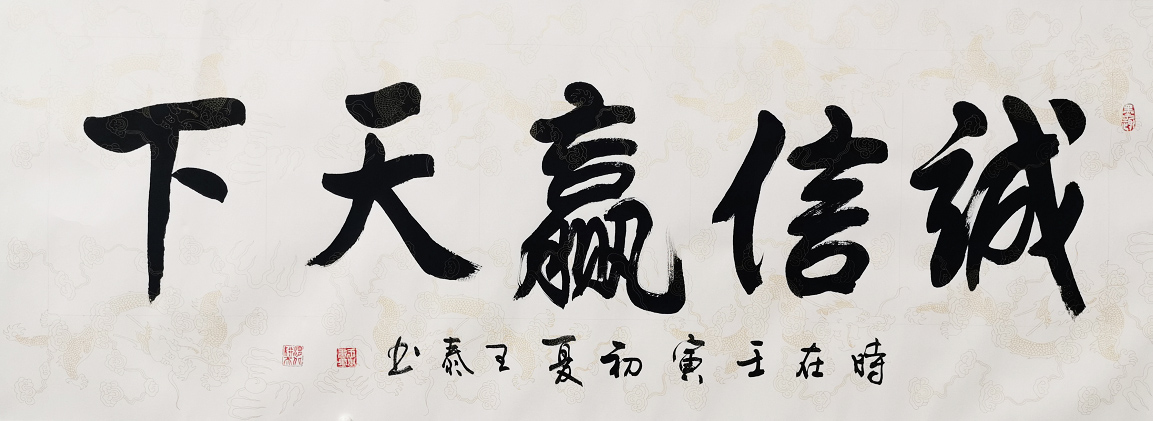 誠信赢天下
時在壬寅初夏王泰书